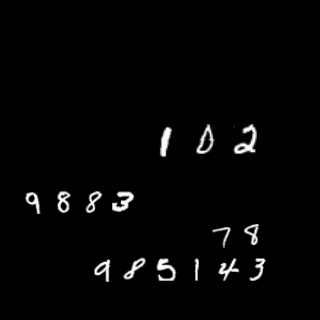 102
9883
78
985143